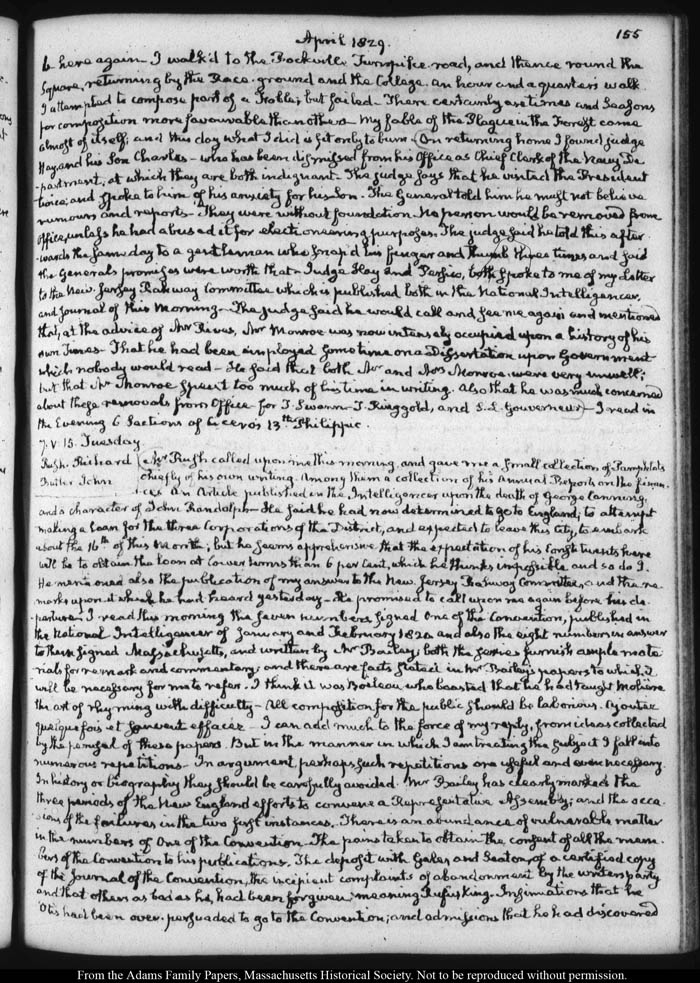 April 1829.
155
be here again— I walk'd to the Rockville Turnpike road, and thence round the
Square, returning by the Race-ground and the College. an hour and a quarter's walk
I attempted to compose part of a Fable; but failed— There certainly are times and Seasons
for composition more favourable than others— My fable of the Plague in the Forest came
almost of itself; and this day what I did is fit only to burn— On returning home I found judge
Hay, and his Son Charles— who has been dismissed from his Office as Chief Clerk of the Navy De-
-partment, at which they are both indignant— The judge says that he visited the President
twice; and spoke to him of his anxiety for his Son— The General told him he must not believe
rumours and reports— They were without foundation— No person would be removed from
Office, unless he had abused it for electioneering purposes. The judge said he told this after-
wards the same day to a gentleman who snap'd his finger and thumb three times and said
the General's promises were worth that— Judge Hay and Persico, both spoke to me of my Letter
to the New-Jersey Railway Committee which is published both in the National Intelligencer,
and Journal of this Morning— The judge said he would call and see me again and mentioned
that, at the advice of Mr Rives, Mr Monroe was now intensely occupied upon a history of his
own Times— That he had been employed sometime on a Dissertation upon Government
which nobody would read— He said that both Mr and Mrs Monroe were very unwell;
but that Mr Monroe spent too much of his time in writing. Also that he was much concerned
about these removals from Office for T. Swann— T. Ringgold, and S. L. Gouverneur— I read in
the Evening 6 Sections of Cicero's 13th Philippic.
7. V. 15. Tuesday.
Rush. Richard
Mr Rush called upon me this morning, and gave me a small collection of Pamphlets
Bailey John
chiefly of his own writing. Among them a collection of his Annual Reports on the finan-
-ces— An Article published in the Intelligencer upon the death of George Canning,
and a character of John Randolph— He said he had now determined to go to England; to attempt
making a Loan for the three Corporations of the District, and expected to leave this City, to embark
about the 16th of this Month; but he seems apprehensive that the expectation of his Constituents here
will be to obtain the Loan at lower terms than 6 per Cent, which he thinks impossible and so do I.
He mentioned also the publication of my answer to the New Jersey Railway Committee, and the re-
marks upon it which he had heard yesterday— He promised to call upon me again before his de-
-parture. I read this morning the seven numbers signed One of the Convention, published in
the National Intelligencer of January and February 1820 and also the eight numbers in answer
to them signed Massachusetts, and written by Mr Bailey, both the series furnish ample mate-
rials for remark and commentary; and there are facts stated in Mr Bailey's papers to which it
will be necessary for me to refer. I think it was Boileau who boasted that he had taught Moliere
the art of rhyming with difficulty— All composition for the public should be laborious. Ajoutez
quelque fois et souvent effacez— I can add much to the force of my reply, from ideas collected
by the perusal of these papers. But in the manner in which I am treating the subject I fall into
numerous repetitions— In argument perhaps such repetitions are useful and even necessary.
In history or biography they should be carefully avoided. Mr Bailey has clearly marked the
three periods of the New England efforts to convene a Representative Assembly; and the occa-
sions of the failures in the two first instances. There is an abundance of vulnerable matter
in the numbers of One of the Convention. The pains taken to obtain the consent of all the mem-
bers of the Convention to his publications. The deposit with Gales and Seaton, of a certified copy
of the Journal of the Convention, the incipient complaints of abandonment by the writer's party
and that others as bad as he, had been forgiven; meaning Rufus King. Insinuations that he
Otis had been over-persuaded to go to the Convention; and admissions that he had discovered
From the Adams Family Papers, Massachusetts Historical Society. Not to be reproduced without permission.